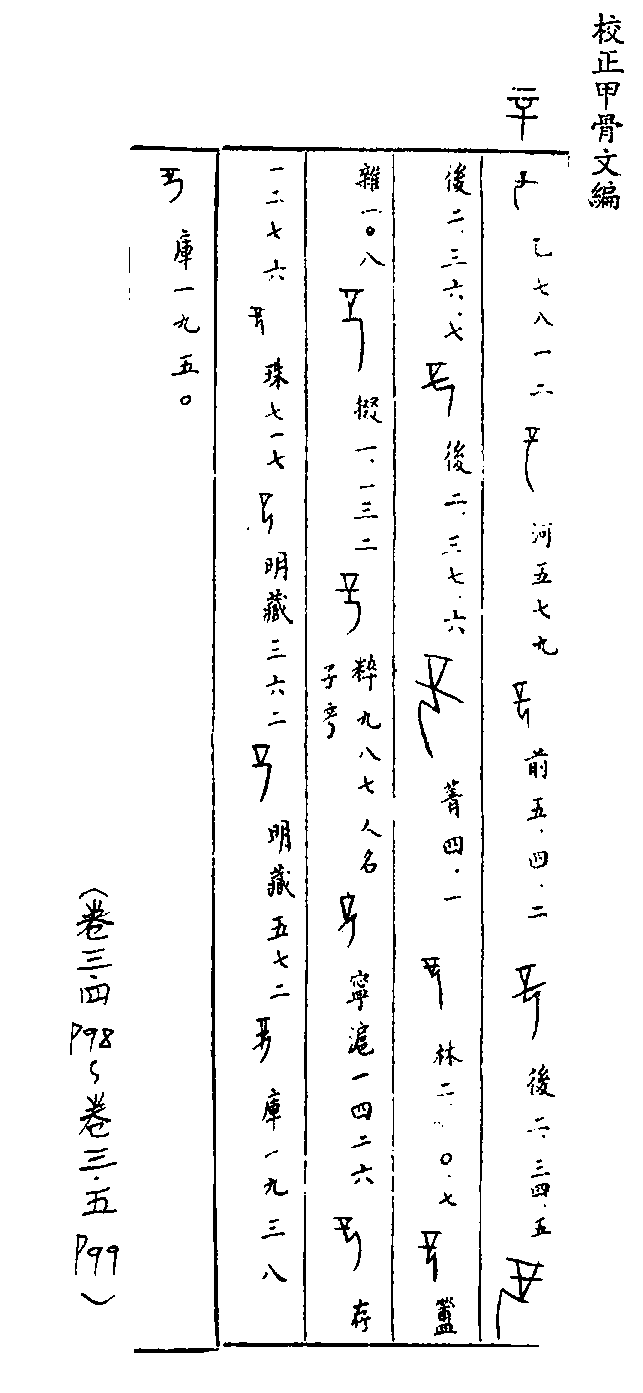 校正甲骨文編
䇂
乙七八一二 河五七九 前五.四.二 後二.三四.五
後二.三六.七 後二.三七.六 菁四.一 林二.〇.七 簠
雜一〇八 掇一.一三二 粹九八七人名子䇂 寧滬一四二六 存
一二七六 珠七一七 明藏三六二 明藏五七二 庫一九三八
庫一九五〇
(卷三.四P98~卷三.五P99)